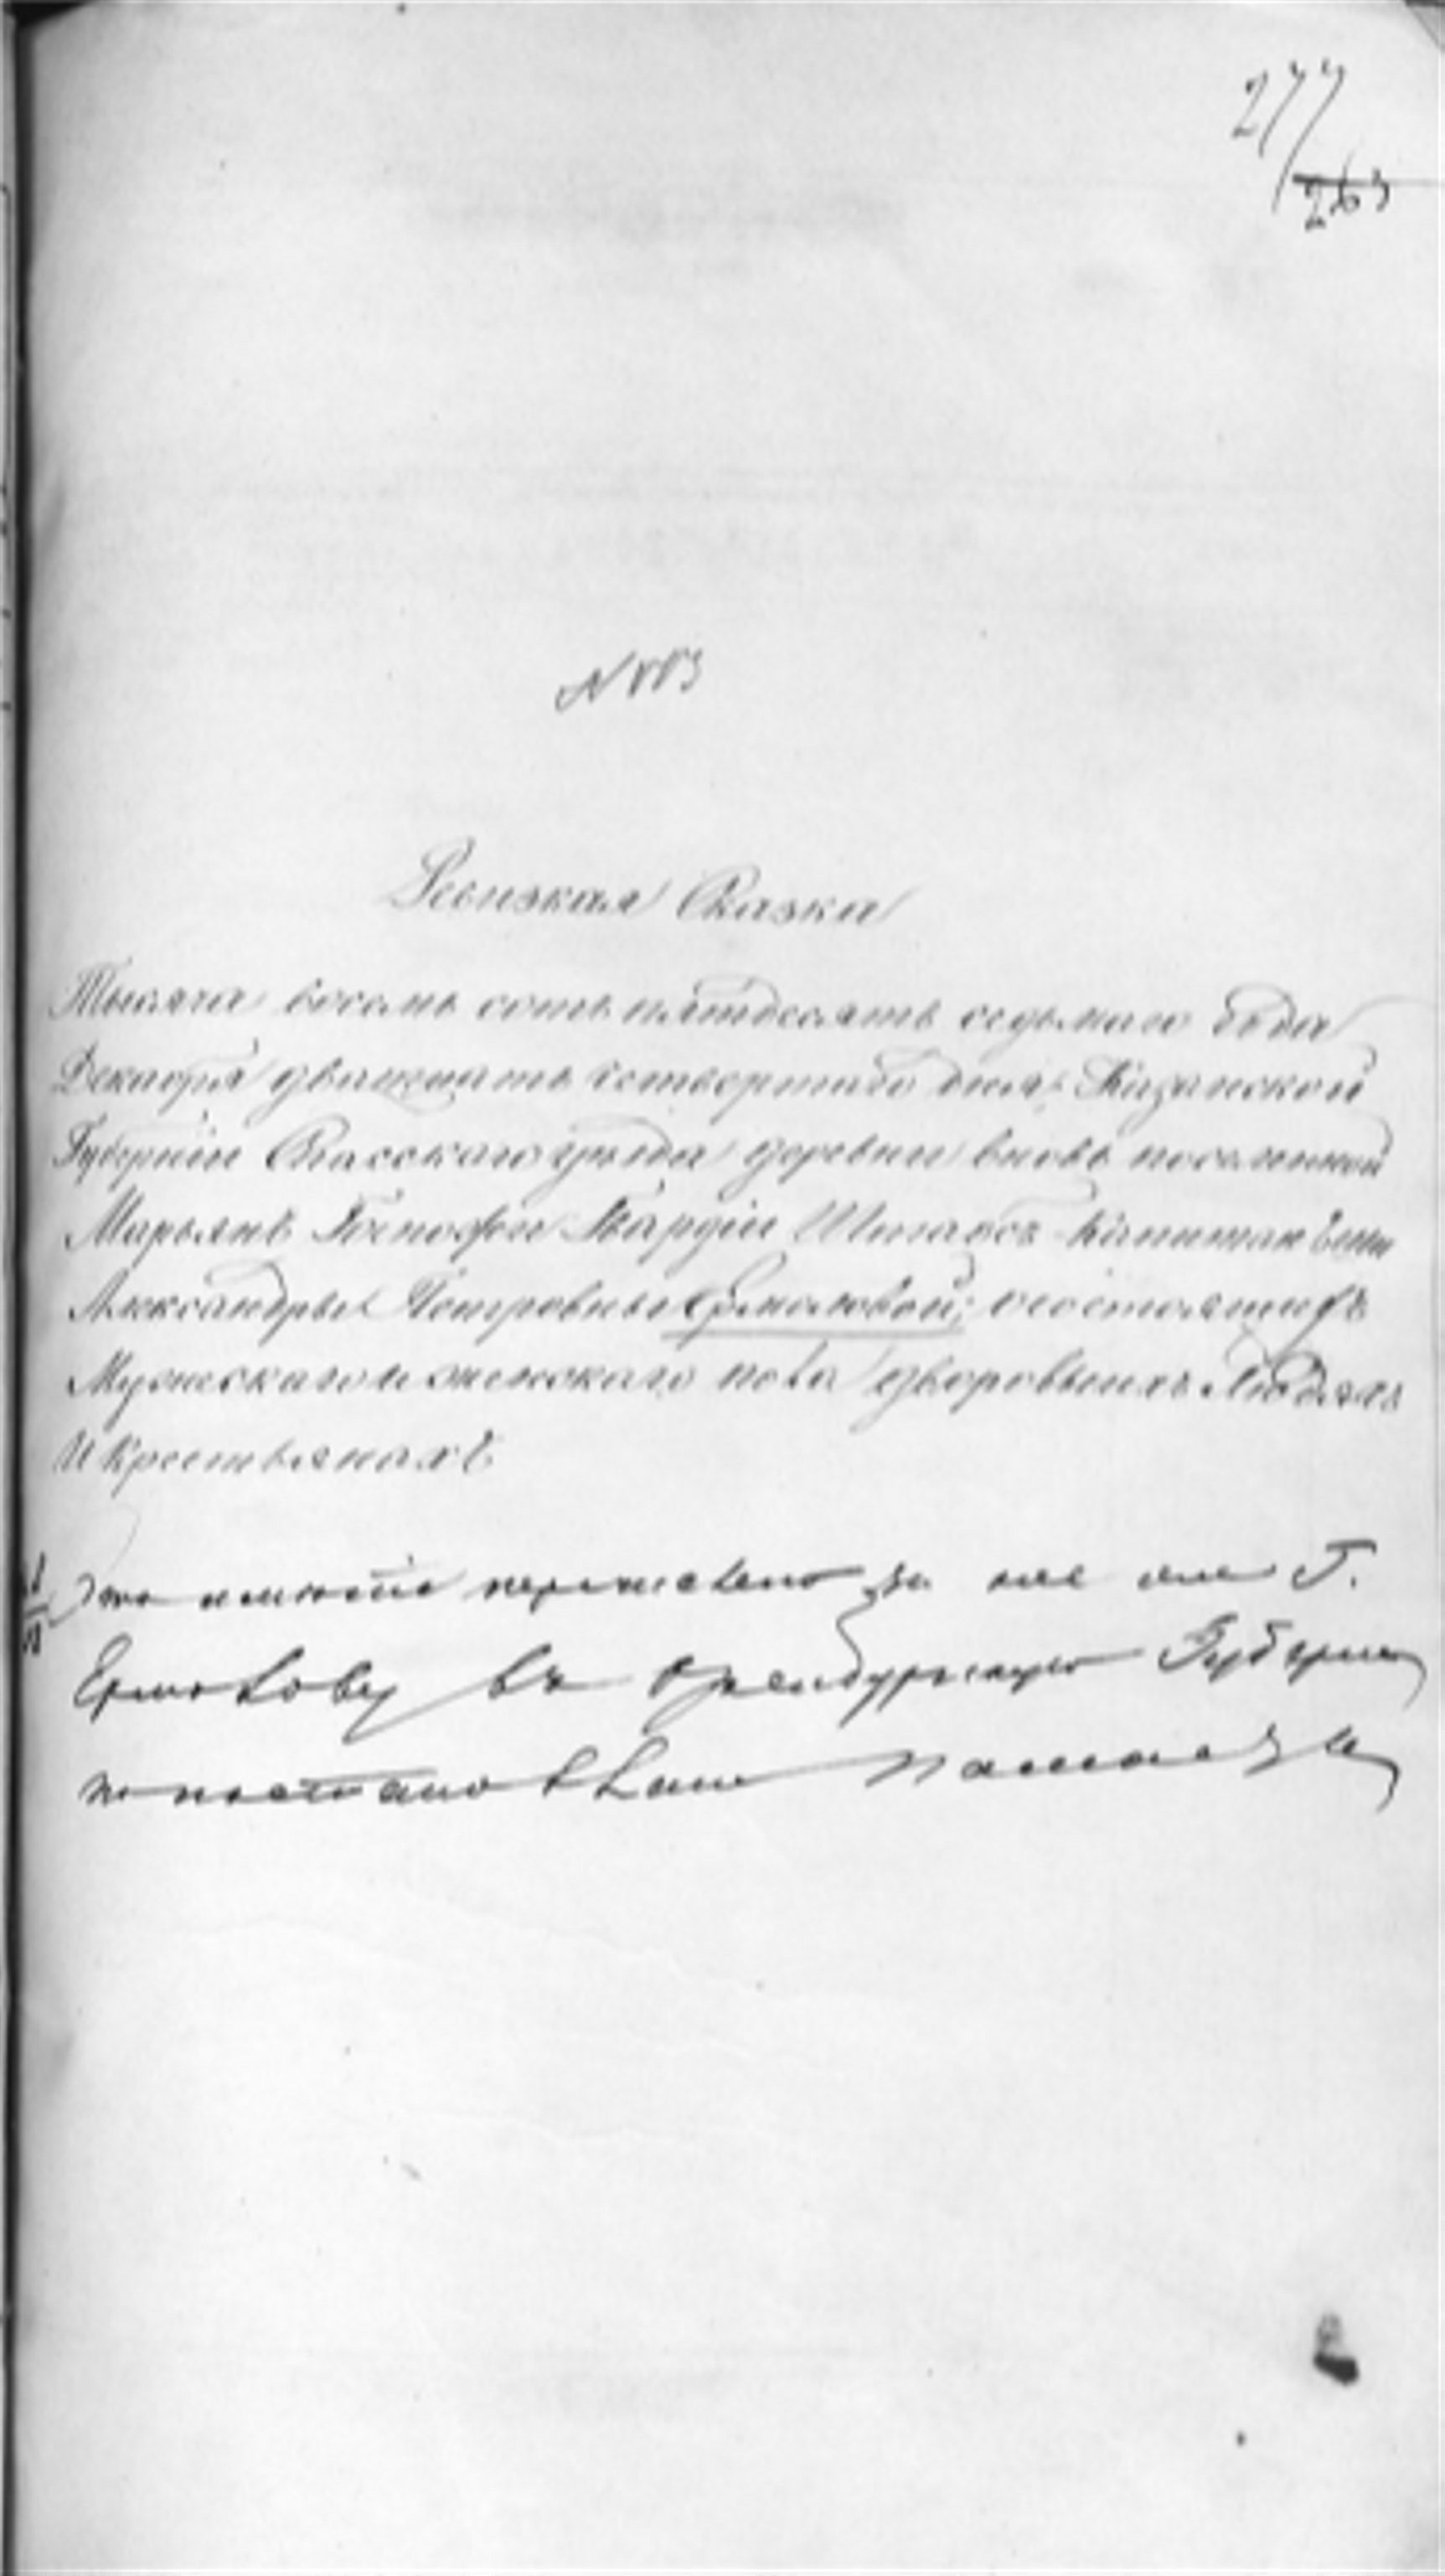 277
263
Ревизкая Сказка
Тысяча восемь сотъ пятдесятъ седьмаго года
Декабря двадцать четвертаго дня, Казанской
Губерніи Спасскаго уѣзда деревни вновь поселенной
Марьянъ Госпожи Гвардіи Штабсъ Капитанши
Александры Петровны Ермоловой, о состоящихъ
Мужескаго и женскаго пола дворовыхъ Людяхъ
И Крестьянахъ
Это имѣніе перечислено за нее же Г.
Ермолову въ Оренбургскую Губернію
по постановленію Палаты